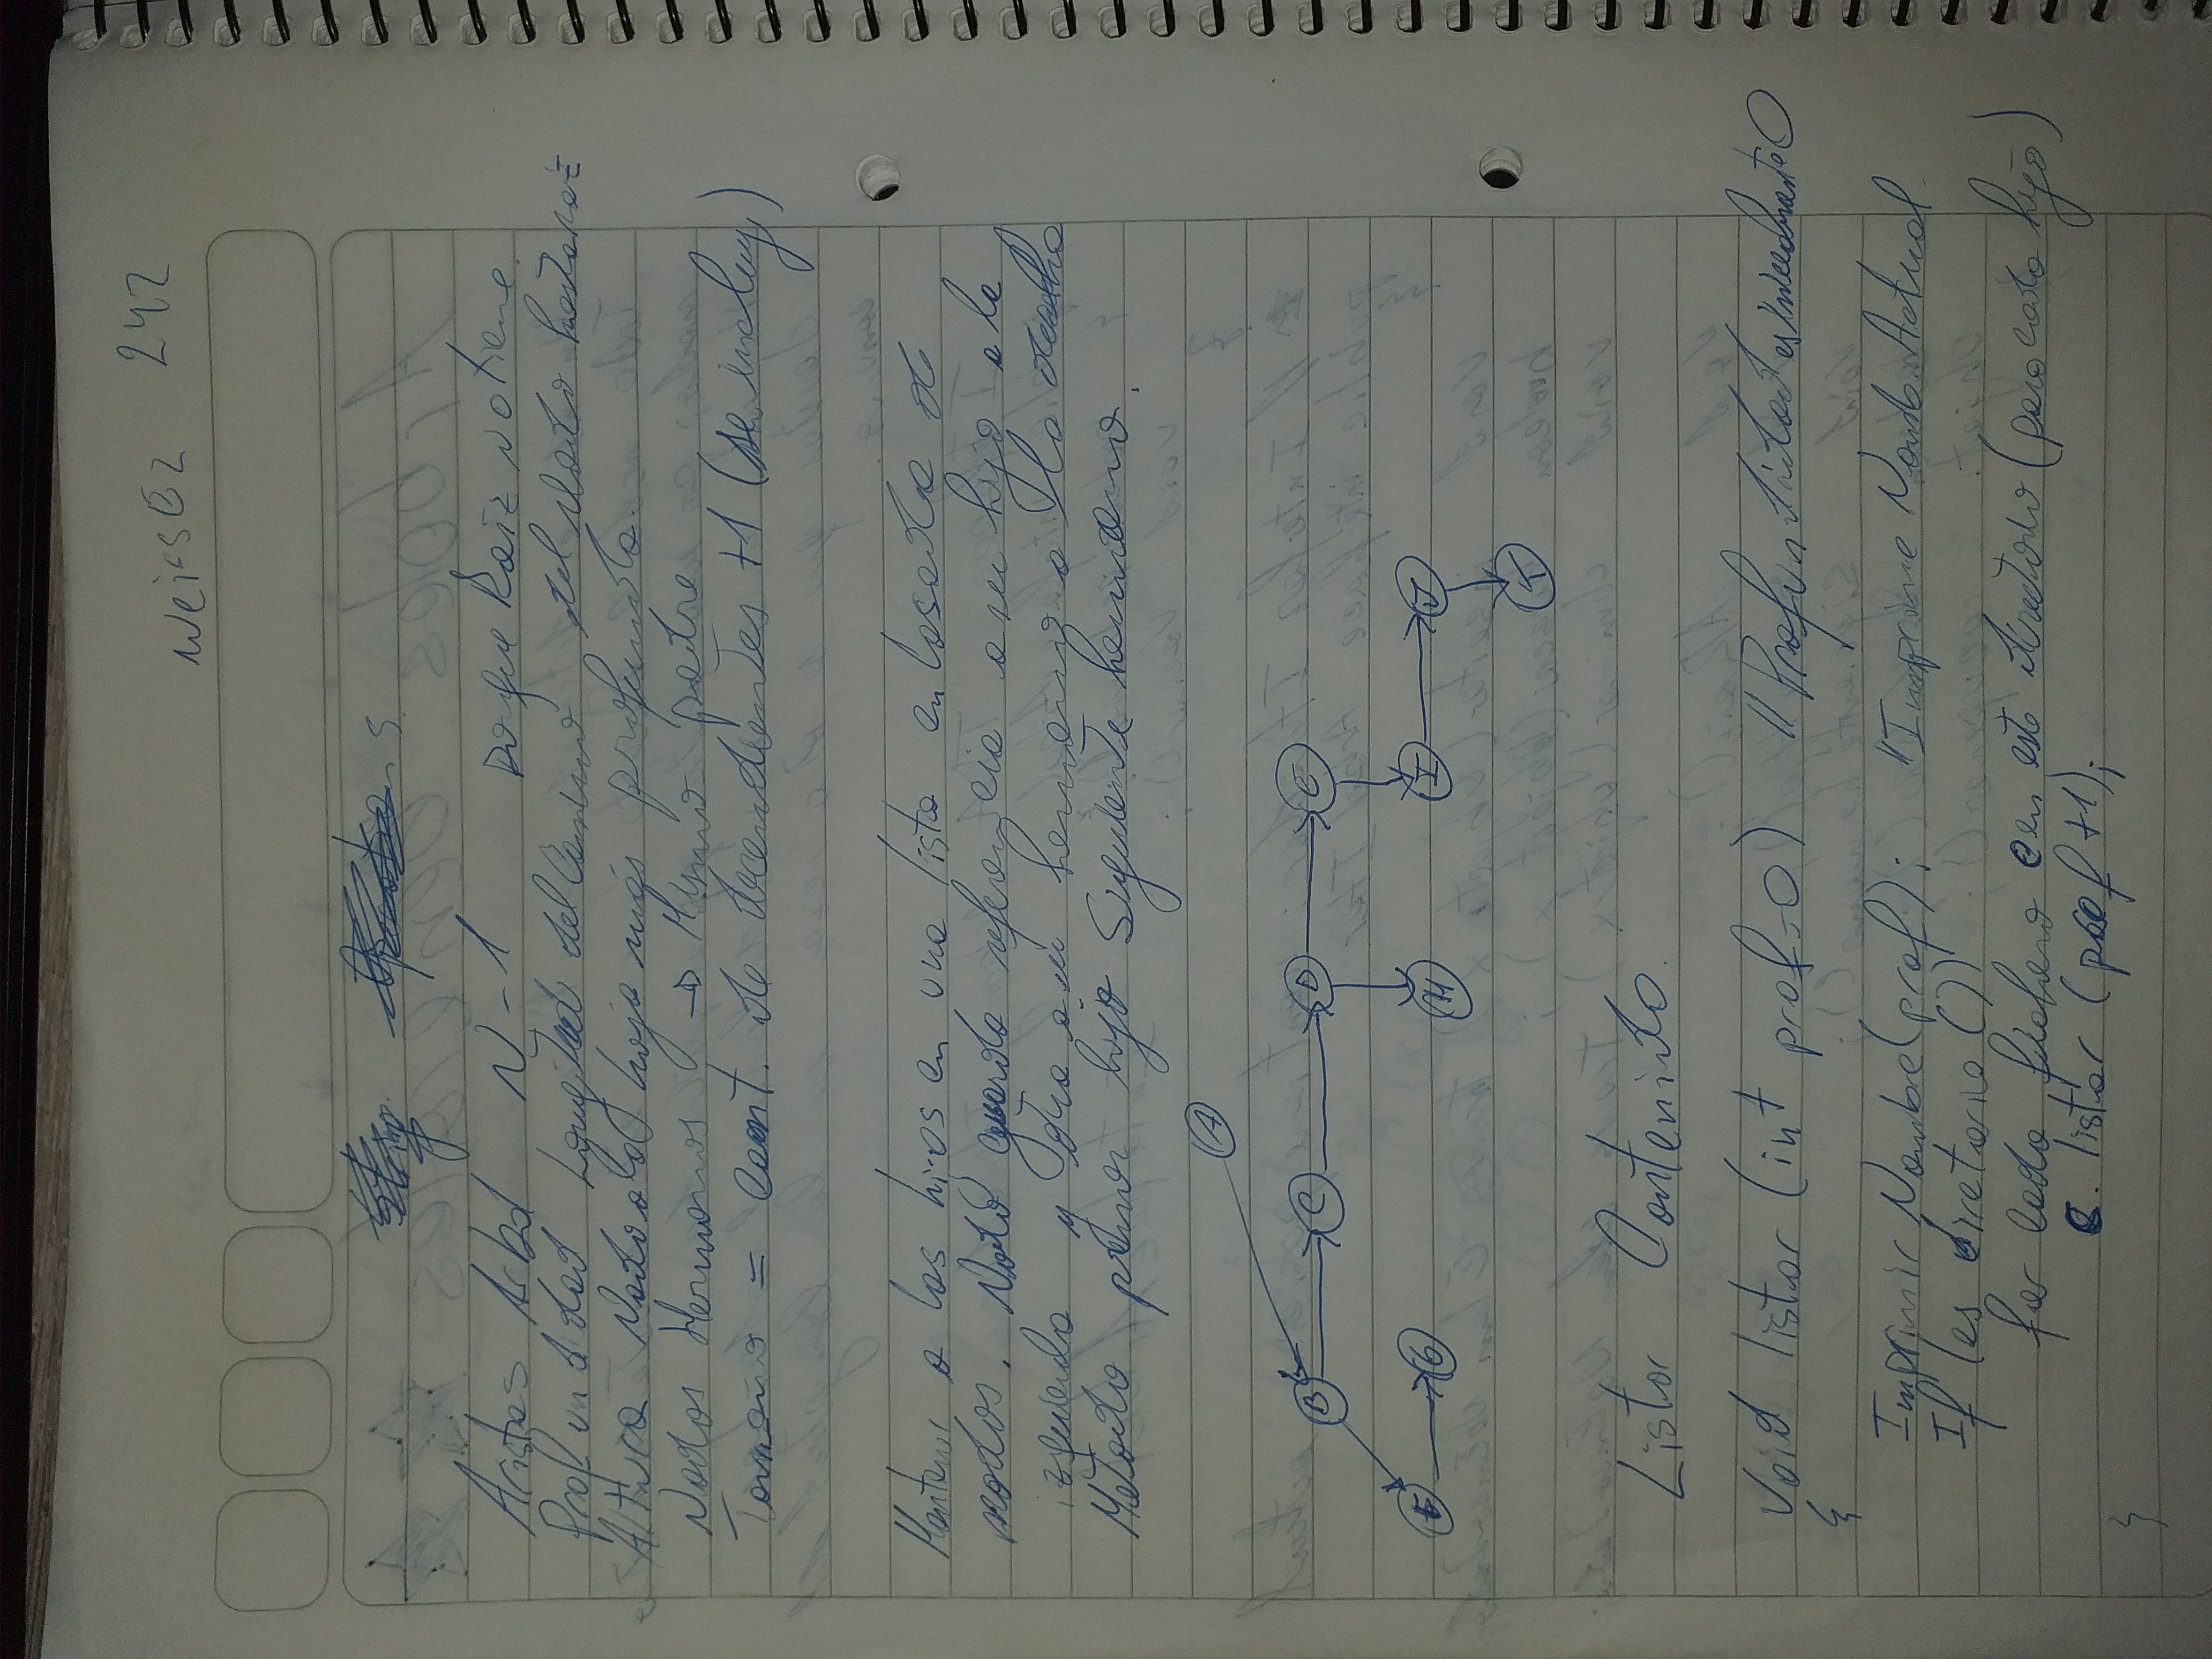 Weiss E2 242
Aristas Arbol N-1 porque Raiz no tiene.
Profundidad Longitud del Camino del Nodo hasta raiz
Altura Nodo a la hoja más profunda.
Nodos Hermanos → Mismo padre
Tamaño = cant. de decendientes +1 (se incluye)
Mantener a los hijos en una lista enlasada de
nodos. Nodo guarda referencia a su hijo a la
izquierda y otra a su hermano a la derecha
Método primer hijo Siguiente hermano.
A
B C D E
F G H I J
Listar Contenido.
Void listar (int prof=0) // Profundidad es inicialmente 0
{
Imprimir Nombre(prof); // Imprime Nomb. Actual
If (es diretorio())
for cada fichero c en este directorio (para cada hijo)
c. listar (prof +1);
}